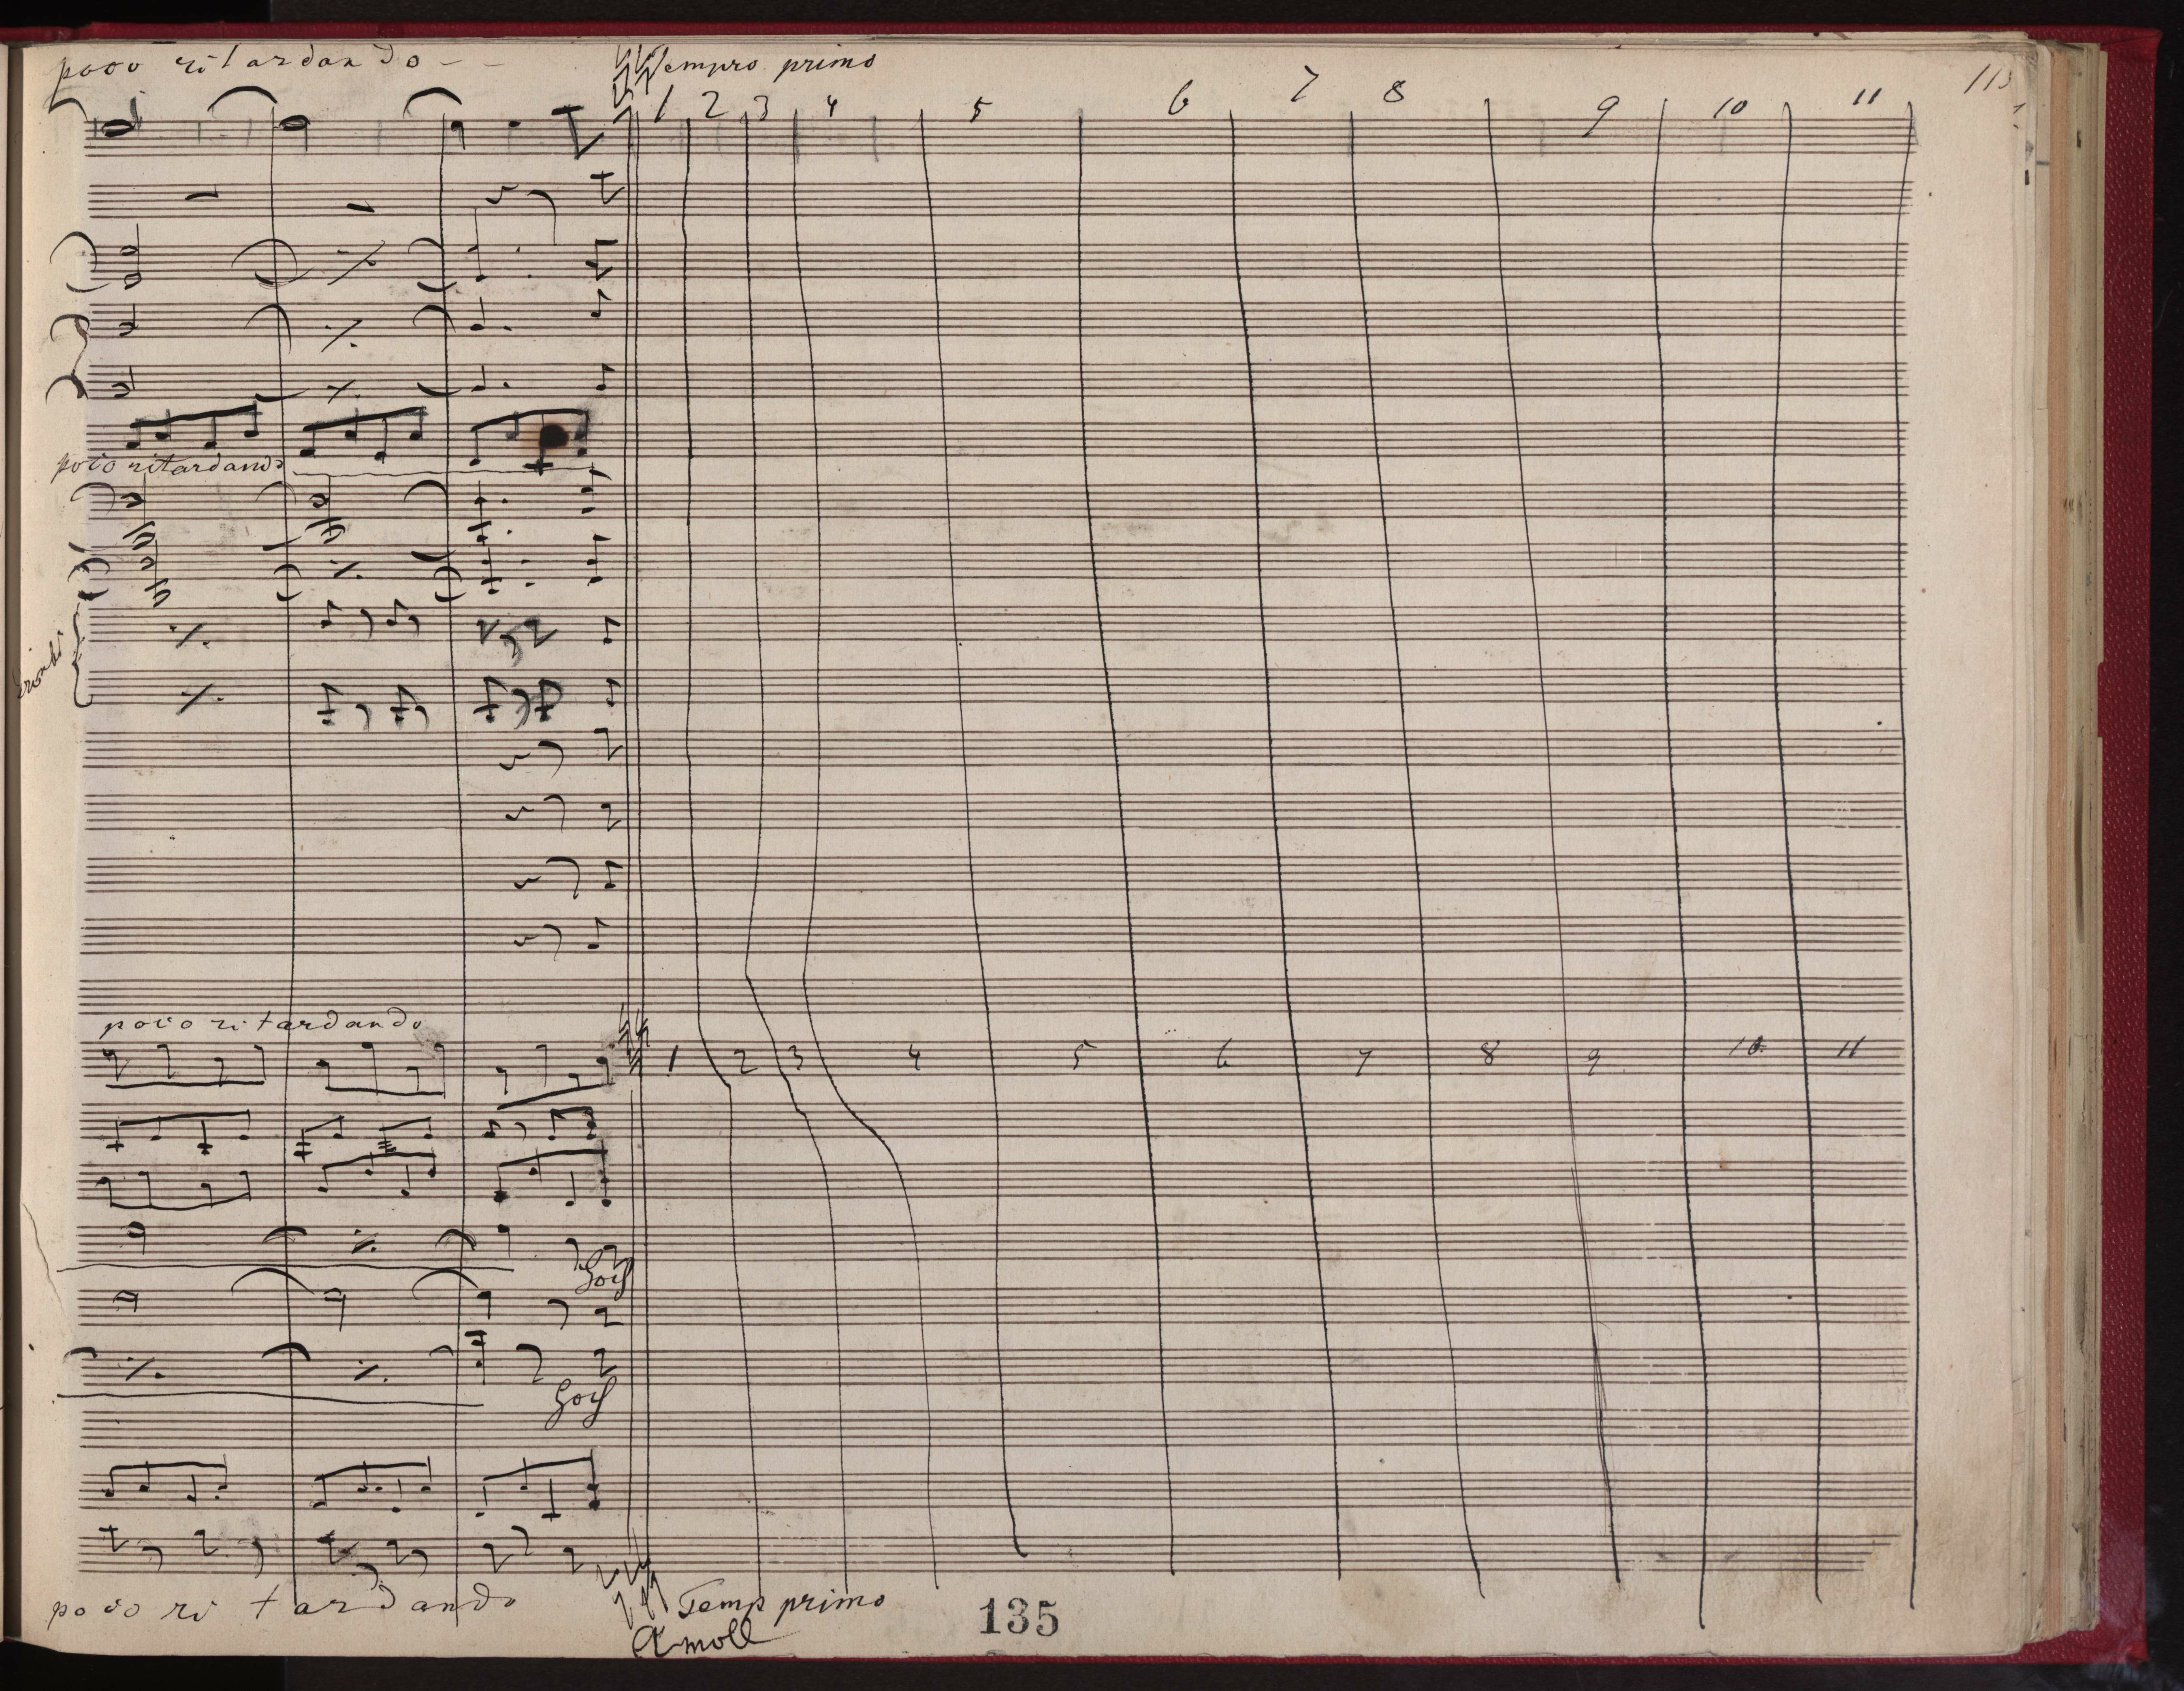 poco ritardando - -
Tempro primo
113
1 2 3 4 5 6 7 8 9 10 11
poco ritardando
poco ritardando
1 2 3 4 5 6 7 8 9 10 11
hoch
hoch
poco ritardando
Temp primo
135
A moll